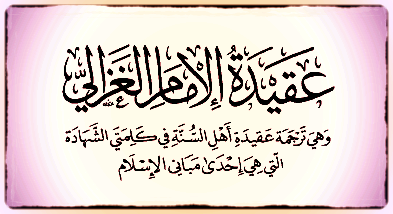 عَقِيْدَةُ الإِمَامِ الغَزَالِيّ
وَهِيَ تَرْجَمَة عَقِيدَةِ أَهْلِ السُّنَّةِ فِي كَلِمَتَيِ الشَّهَادَة
الَّتِي هِيَ إِحْدَىٰ مَبَانِي الإِسْلَام